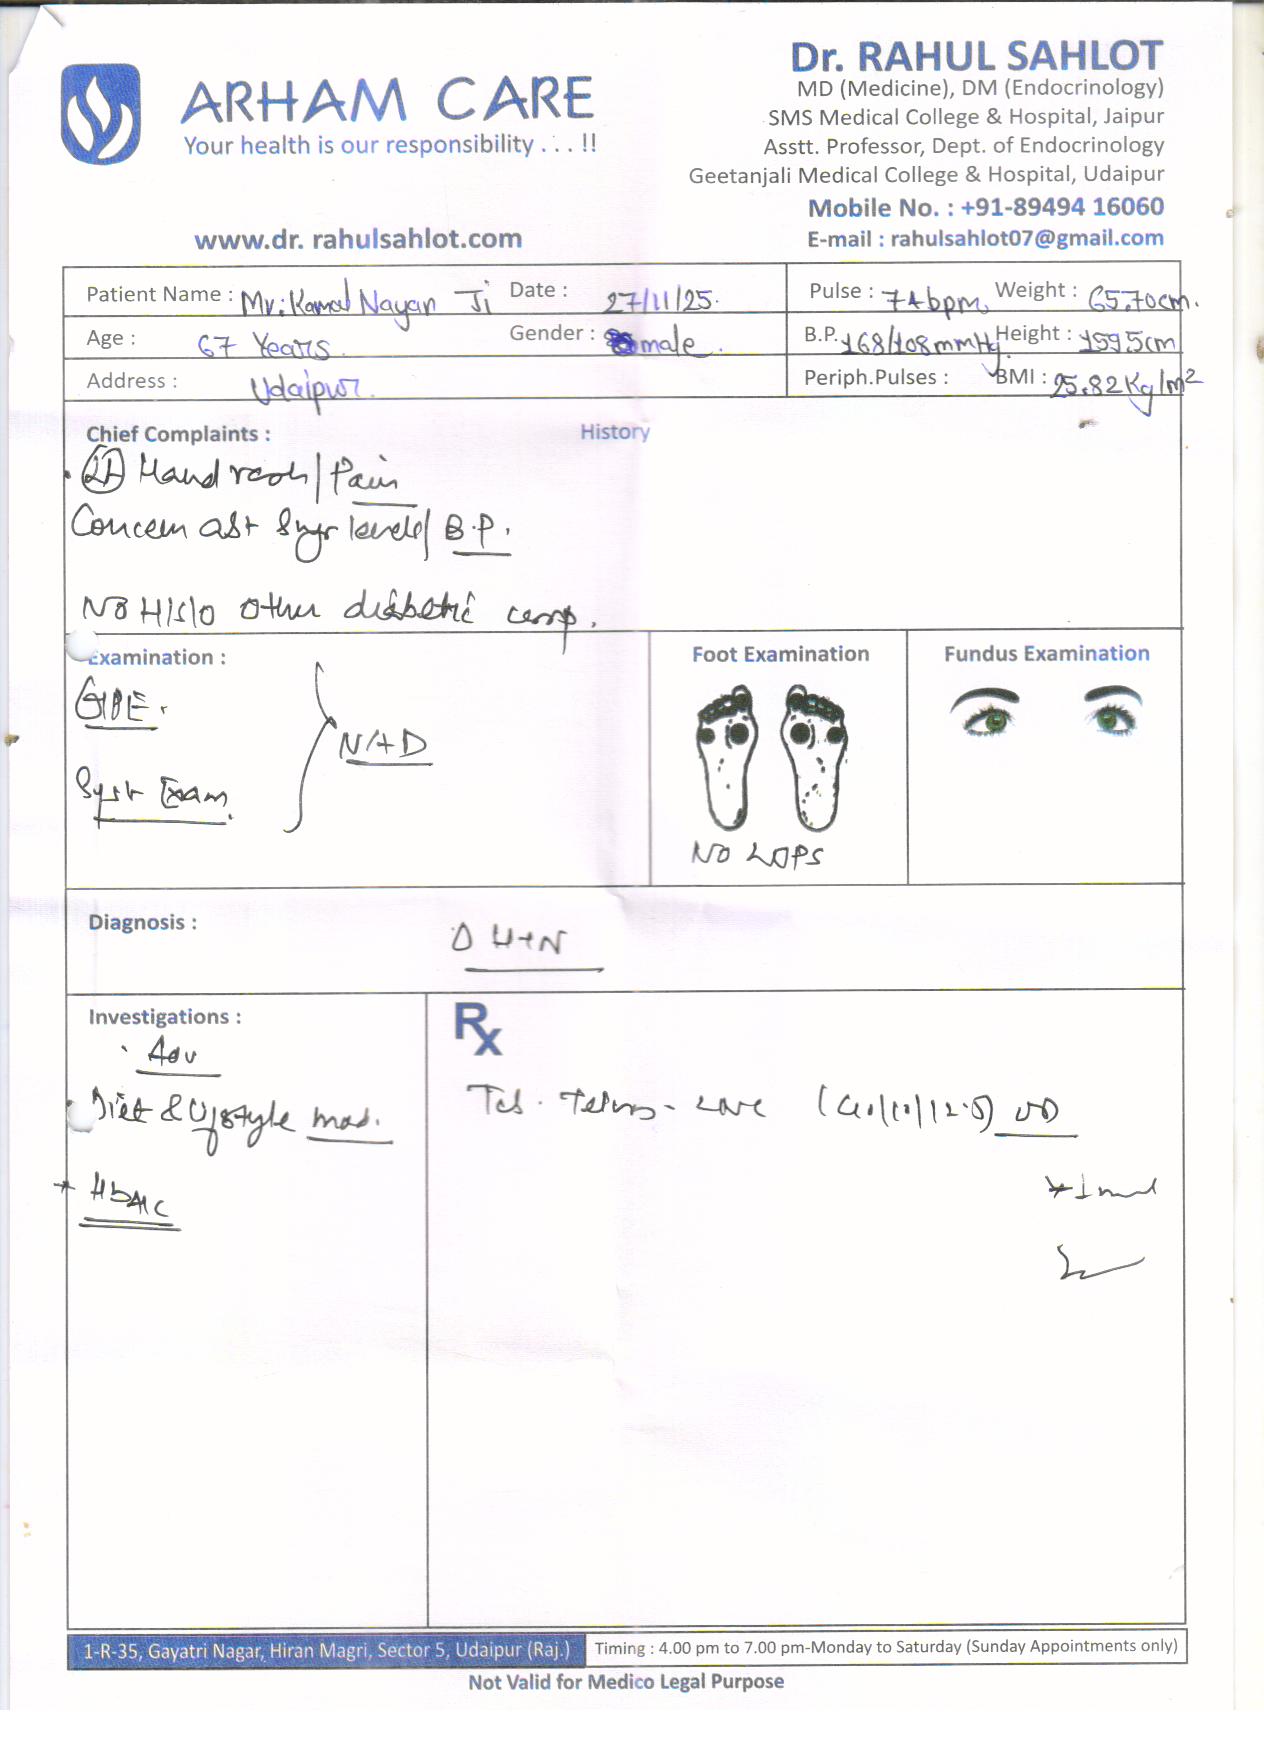 ARHAM CARE
Your health is our responsibility . . . !!
www.dr. rahulsahlot.com
Dr. RAHUL SAHLOT
MD (Medicine), DM (Endocrinology)
SMS Medical College & Hospital, Jaipur
Asstt. Professor, Dept. of Endocrinology
Geetanjali Medical College & Hospital, Udaipur
Mobile No. : +91-89494 16060
E-mail : rahulsahlot07@gmail.com
Patient Name : Mr. Kamal Nayan Ji Date : 27/11/25. Pulse : 74bpm Weight : 65.70cm.
Age : 67 Years. Gender : male. B.P. 168/108mmHg. Height : 159.5cm
Address : Udaipur. Periph.Pulses : BMI : 25.82 Kg/m2
Chief Complaints : History
Hand / Pain
Concern levels / B.P.
No H/S/O Other diabetic comp.
Examination : Foot Examination Fundus Examination
GPE.
N A D
Syst Exam
NO LOPS
Diagnosis :
HTN
Investigations : Rx
Adv
Diet & Lifestyle mod.
HbA1c
Tab.
1-R-35, Gayatri Nagar, Hiran Magri, Sector 5, Udaipur (Raj.) Timing : 4.00 pm to 7.00 pm-Monday to Saturday (Sunday Appointments only)
Not Valid for Medico Legal Purpose